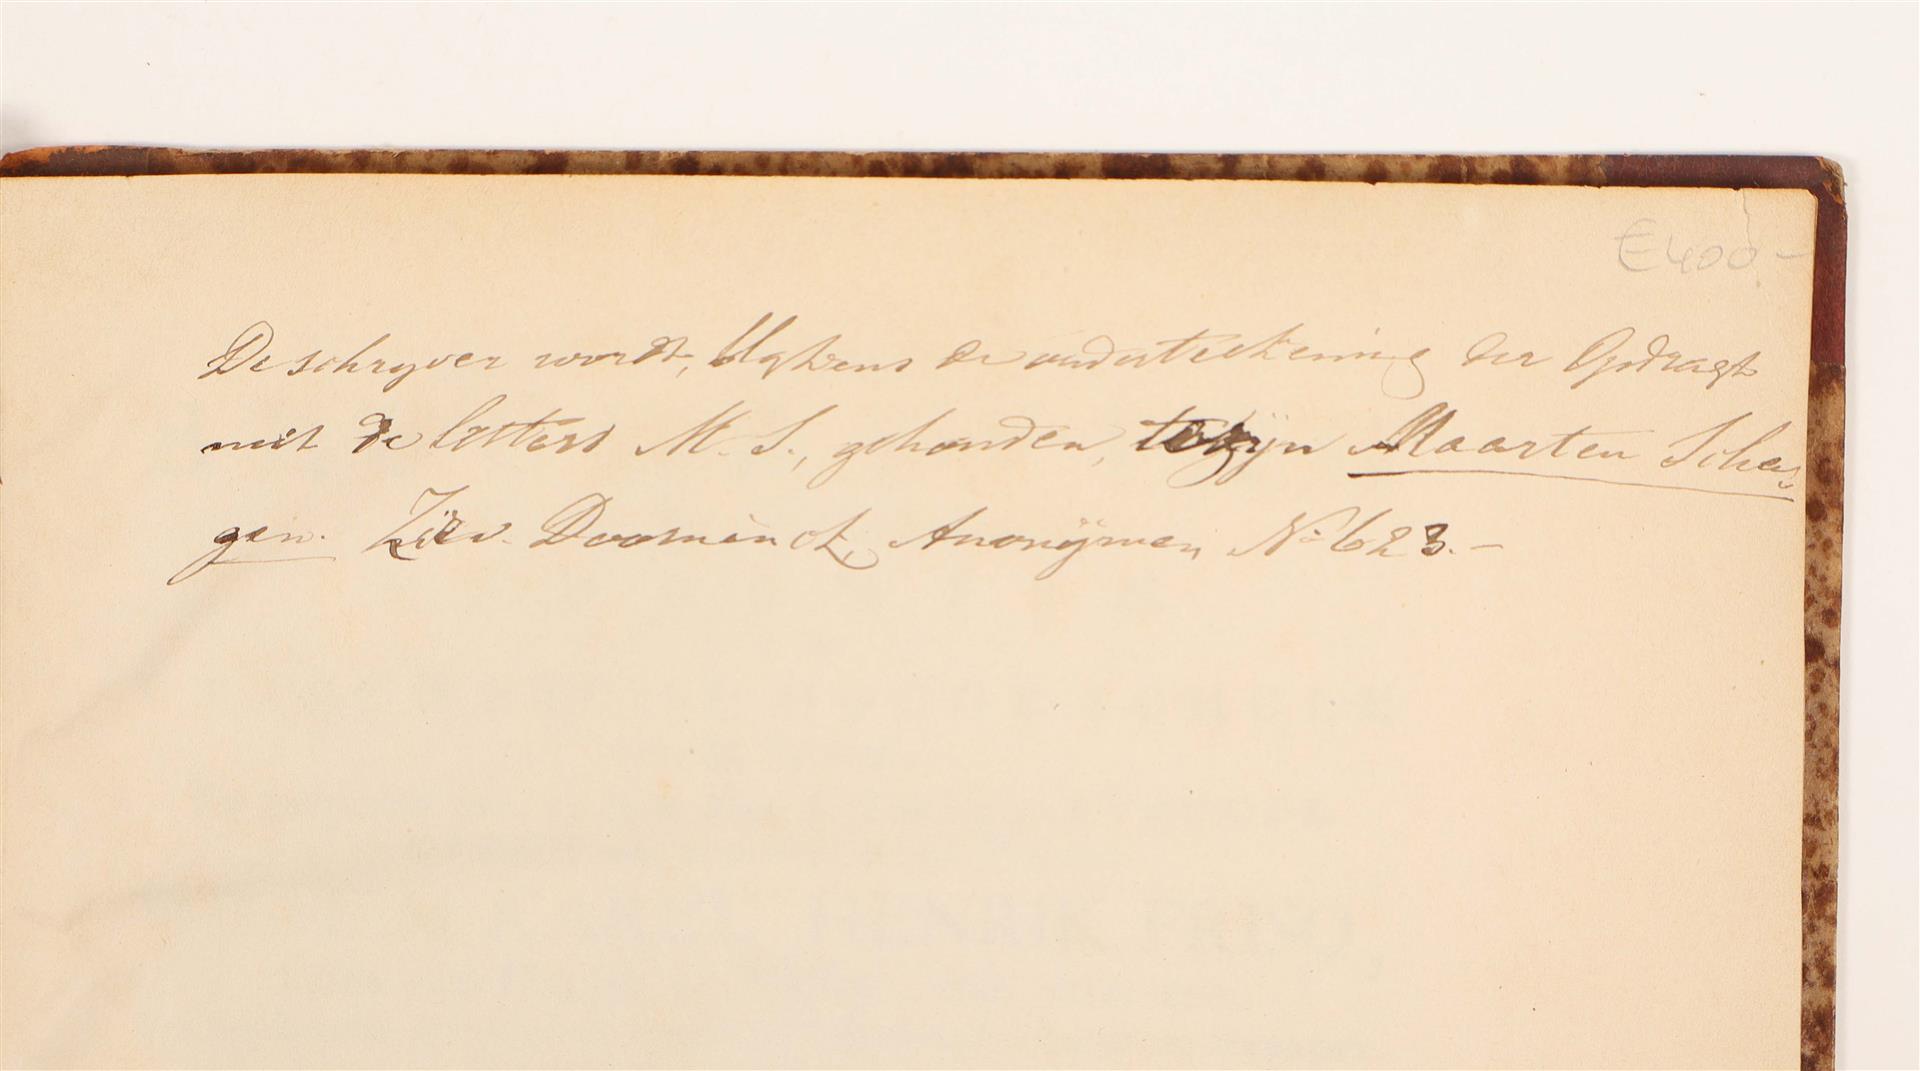 €400-
De schryver wordt, blykens de onderteekening der Opdragt
met de letters M. S., gehouden, te zijn Maarten Scha-
gen. Zie v. Doorninck, Anonijmen, No 623.-